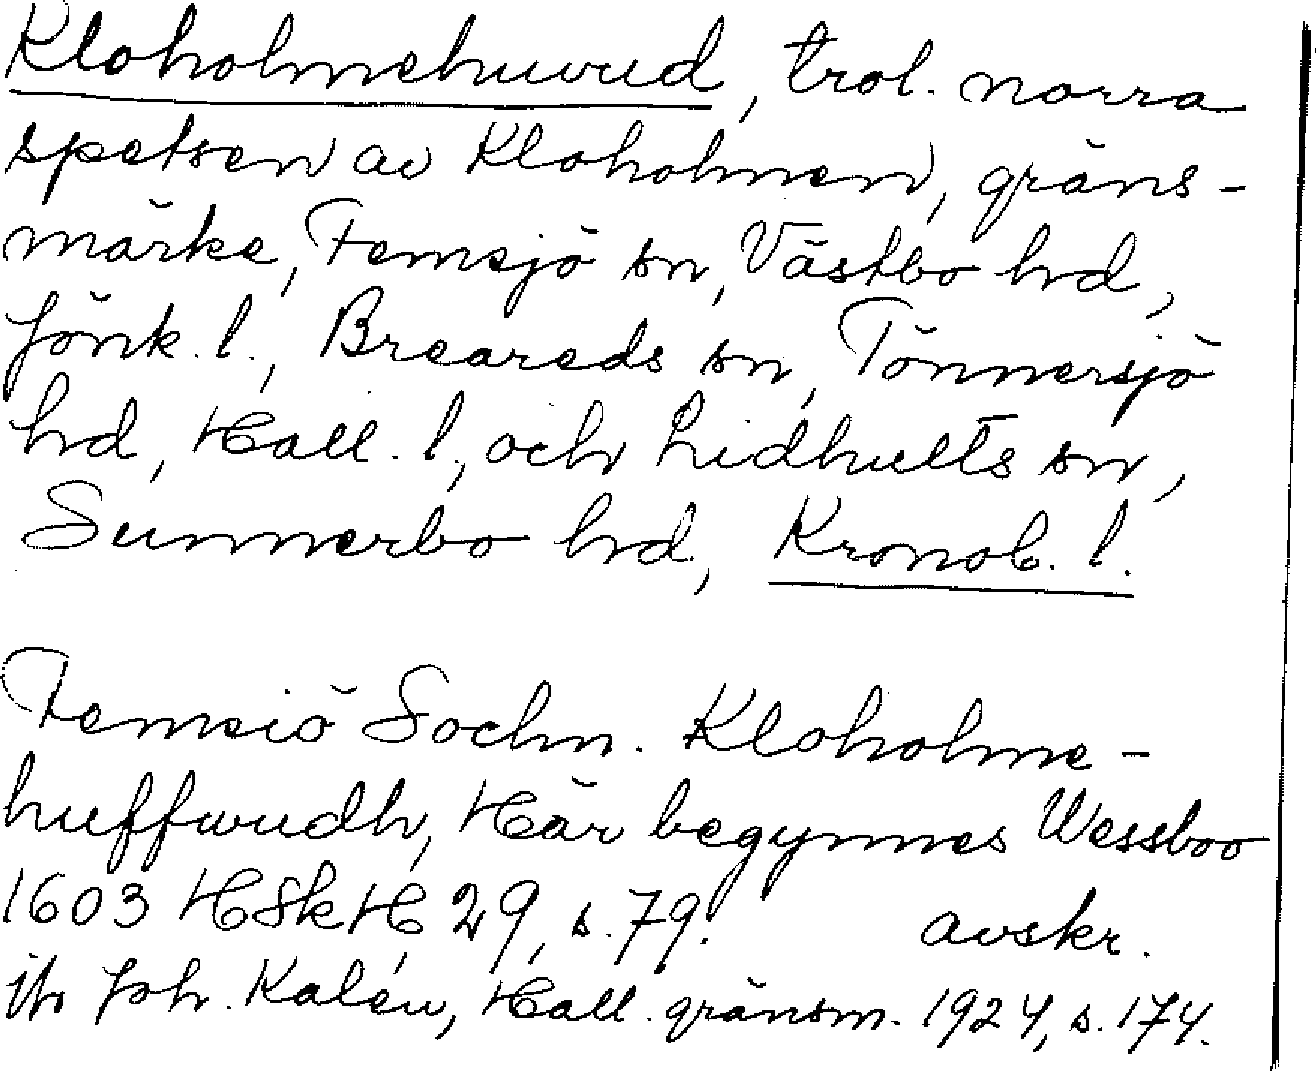 Kloholmehuvud, trol. norra
spetsen av Kloholmen, gräns-
märke, Femsjö sn, Västbo hd,
Jönk. l., Breareds sn, Tönnersjö
hd, Hall. l., och Lidhults sn,
Sunnerbo hd, Kronob. l.
Femsiö Sochn. Kloholme-
huffwudh, Här begynnes Wessboo
1603 HSkH 29, s. 79. avskr.
Joh. Kalén, Hall. gränsm. 1924, s. 174.